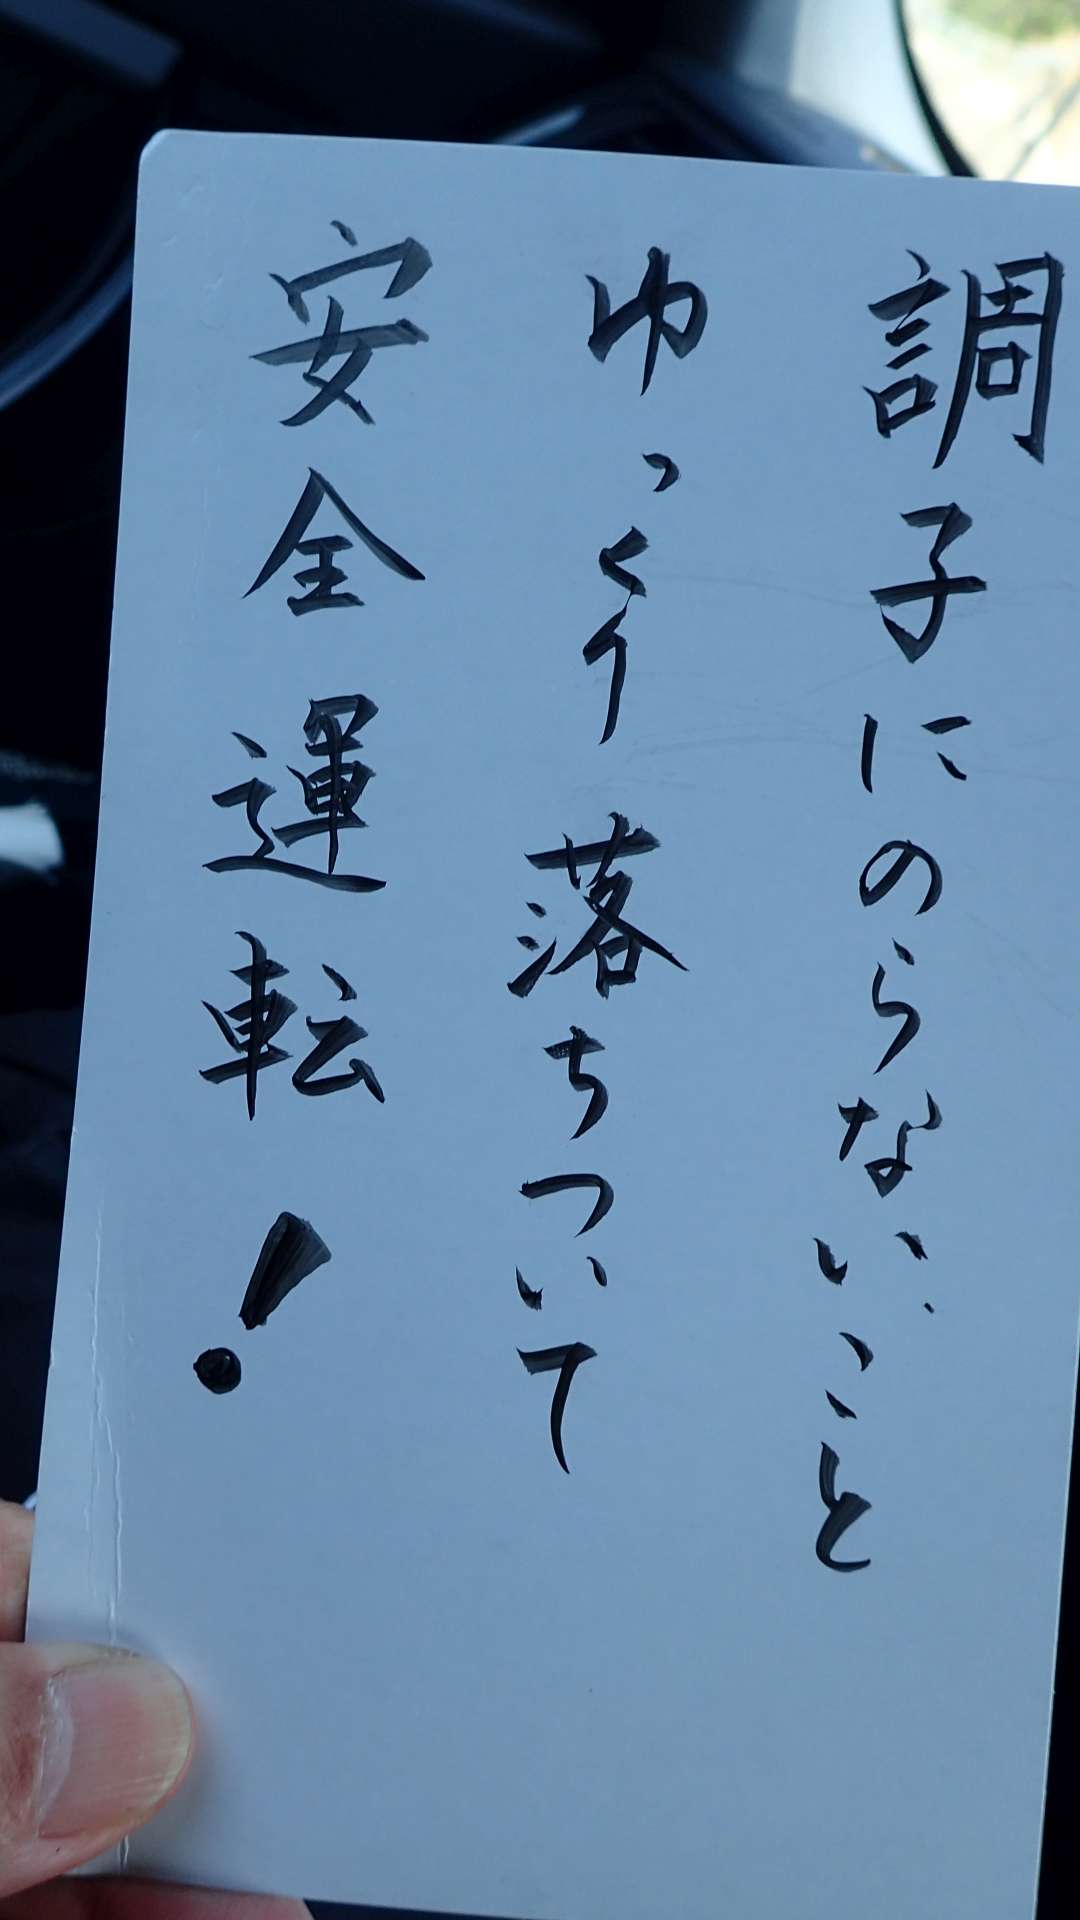 調子にのらないこと
ゆっくり落ちついて
安全運転!